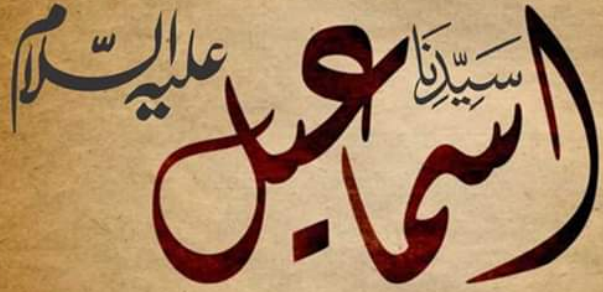 سَيِّدِنَا
اسماعیل
علیہ السّلام